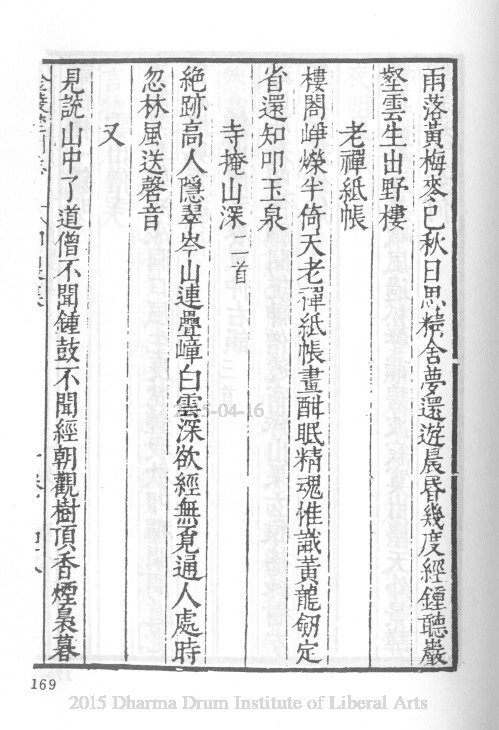 雨落黃梅麥已秋日思精舍夢還遊晨昏幾度經鍾聽巖
壑雲生出野樓
老禪紙帳
樓閣崢嶸半倚天老禪紙帳畫酣眠精魂惟識黃龍劒定
省還知叩玉泉
寺掩山深二首
絶跡高人隱翠岑山連疊嶂白雲深欲經無覓通人處時
忽林風送磬音
又
見說山中了道僧不聞鍾鼓不聞經朝觀樹頂香煙裊暮
169
2015 Dharma Drum Institute of Liberal Arts